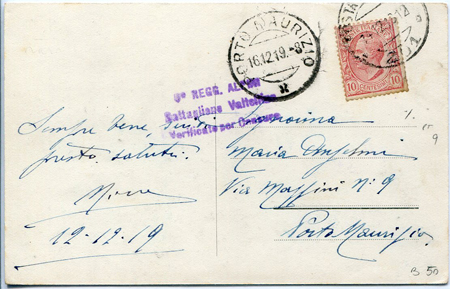 PORTO MAURIZIO
16.12.19.-8
POSTA
10 10
5° REGG. ALPINI
Battaglione Valtellina
Verificato per Censura
Sempre bene, scrivi
presto. saluti.
12-12-19
Signorina
Maria Anselmi
Via Mazzini N° 9
Porto Maurizio
9
B 50